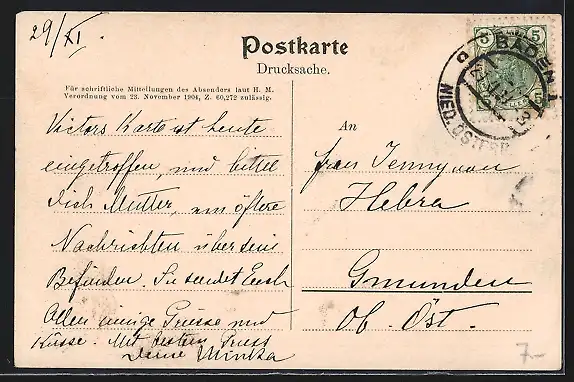 29/XI.
Postkarte
Drucksache.
Für schriftliche Mitteilungen des Absenders laut H. M.
Verordnung vom 23. November 1904, Z. 60,272 zulässig.
5 5
5
BADEN 1
NIED. ÖSTER
Victors Karte ist heute
eingetroffen, und bittet
Dich Mutter, um öftere
Nachrichten über sein
Befinden. Sie sendet Euch
Allen innige Grüsse und
Küsse. Mit bestem Gruss
Deine Minka
An
Frau Jenny von
Hebra
Gmunden
Ob. Öst.
7-